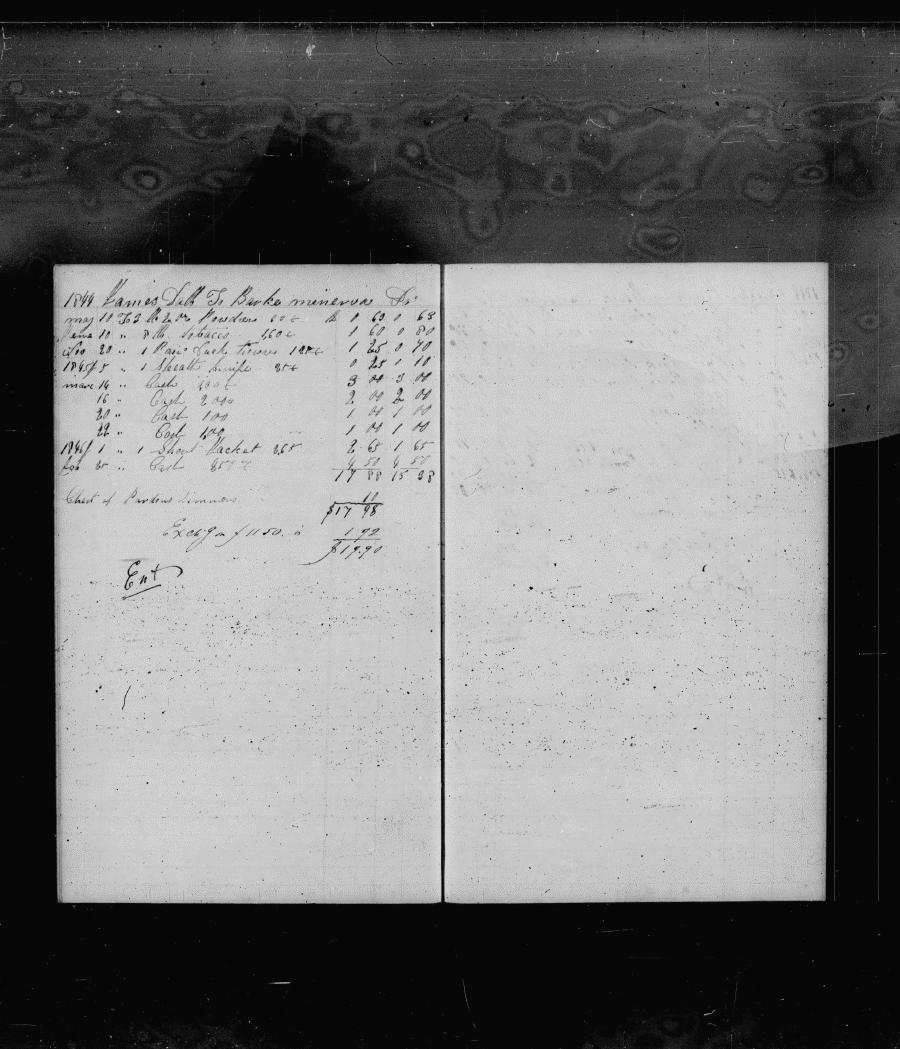 1844 James Dell To Barke minerva Dr
may 10 To 3 lb 2 oz Powders 20 c 0 63 0 63
June 10 " 8 lb tobacco 160 c 1 60 0 80
Nov 20 " 1 Pair Duck trowers 125 c 1 25 0 70
1845 5 " 1 Sheath knife 25 c 0 25 1 10
marc 14 " Cash 300 c 3 00 3 00
16 " Cash 200 c 2 00 2 00
20 " Cash 1 00 1 00 1 00
22 " Cash 1,00 1 00 1 00
1846 1 " 1 Short Jacket 265 2 65 1 65
feb 25 " Cash 450 c 4 50 4 50
17 88 15 38
Chest of 10
$17 98
Exchg on $11 50. is 1.92
$19.90
Ent